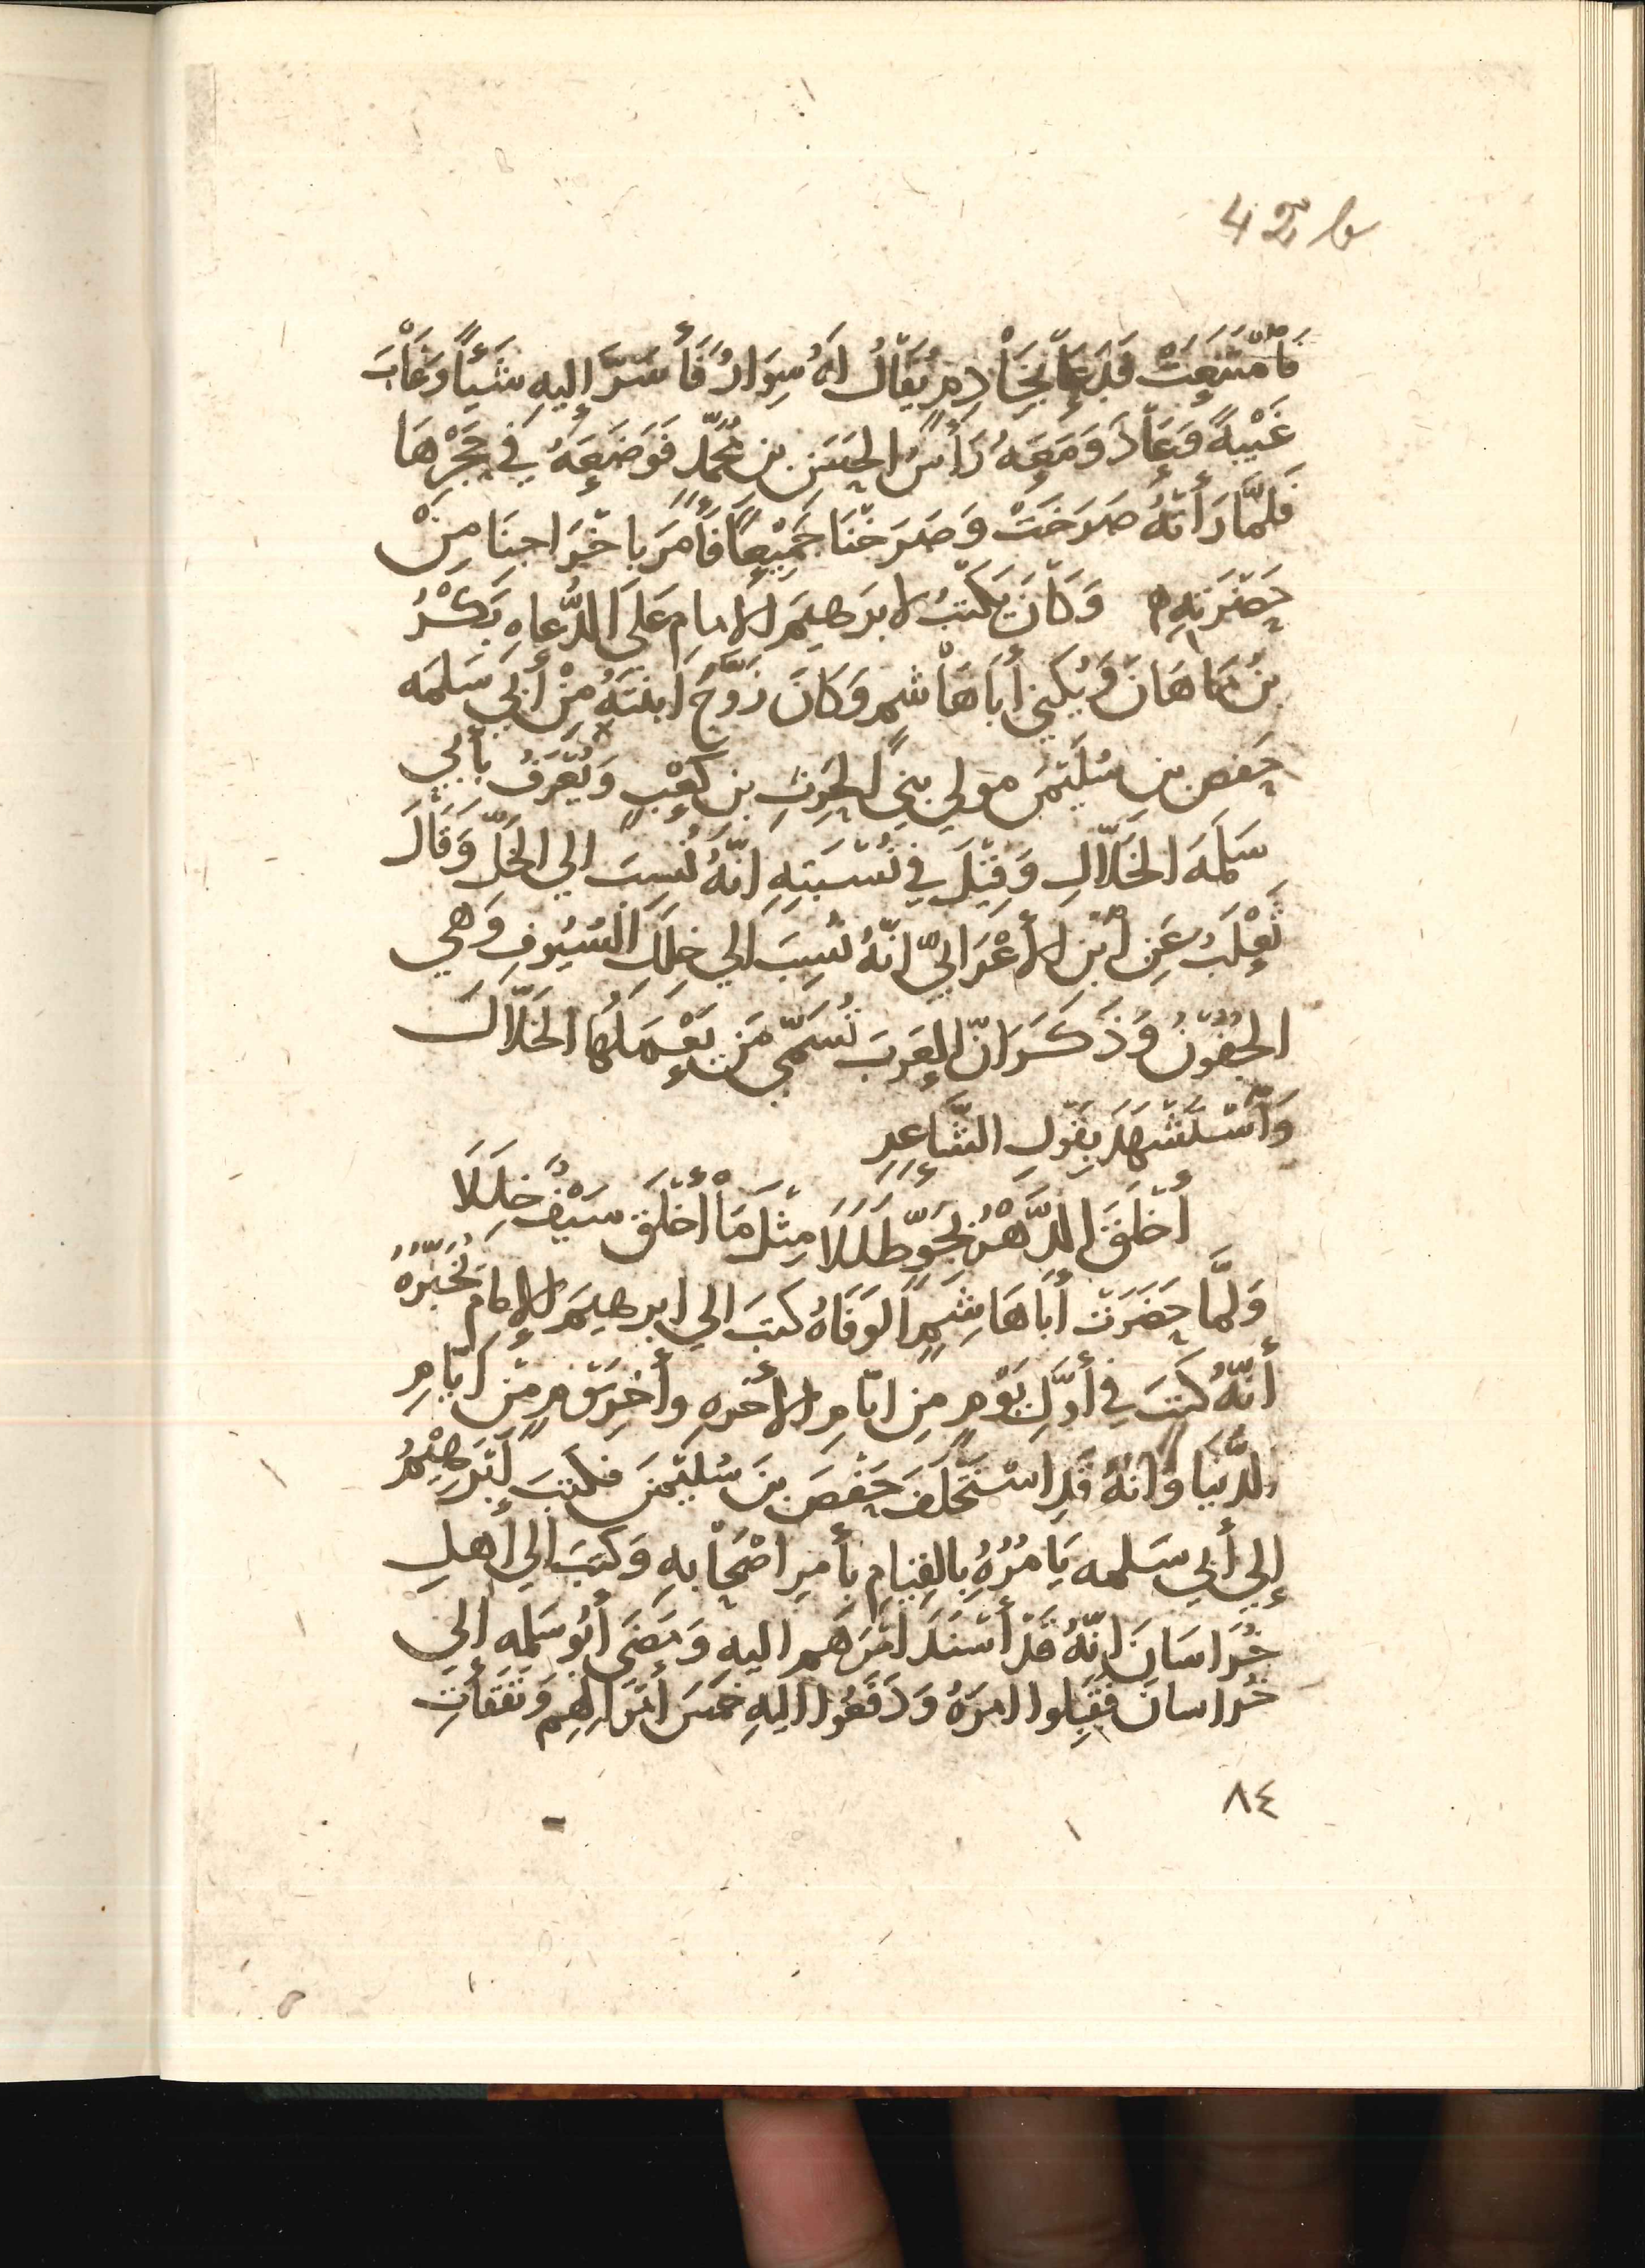 42 b
فَامْتَنَعَتْ فَدَعَا بِخَادِمٍ يُقَالُ لهُ سِوَارٌ فَأَسَرَّ إليهِ شَيْأً وَغَابَ
غَيْبةً وَعَادَ وَمَعَهُ رَأسُ الحسَنِ بنِ مُحمَّدٍ فَوَضَعَهُ فِي حَجْرِهَا
فَلمَّا رَأتْهُ صَرَخَتْ وَصَرَخْنَا جَمِيْعًا فَأَمَرَ باخْرَاجِنَا مِنْ
حَضْرَتِهِ ۞ وَكَانَ يَكتُبُ لابرَهيمَ الامامِ عَلَى الدُّعاهِ بَكْرُ
بنُ مَاهَانَ وَيُكنِي أَبَا هَاشِمٍ وَكَانَ زَوَّجَ ابنتَهُ مِنْ أَبِي سَلمَه
حَفص بنِ سُلَيْمَنَ مَولي بنِي الحرِثِ بنِ كَعْبٍ وَيُعْرَفُ بِأَبِي
سَلَمَهَ الخَلَّالِ وَقِيْلَ فِي نُسْبَتِهِ انَّهُ نُسِبَ الي الخَلِّ وَقَالَ
ثَعْلَبُ عَنِ ابْنِ الأَعْرَابِيِّ انَّهُ نُسِبَ الي خِلَلِ السُيُوفِ وَهي
الجُفُوْنُ وَذَكَرَ انَّ العَرَبَ تُسَمِّي مَن يَعْمَلُهَا الخَلَّالَ
وَاسْتَشْهَدَ بِقَولِ الشَّاعِرِ
أَخْلَقَ الدَّهْرُ بِجَوٍّ طَلَلَا مِثْلَ مَا أَخْلَقَ سَيْفٌ خِلَلَا
وَلمَّا حَضَرَتْ أَبَا هَاشِمٍ الوَفَاهُ كتبَ الي ابرهيمَ الإمَامِ يُخَبِّرهُ
أنَّهُ كَتَبَ فِي أَوَّلِ يَوْمٍ مِن ايّامِ الأخرهِ وأَخِرِ يَوْمٍ مِنْ ايَّامِ
الدُّنيَا وَانَّهُ قَدِ اسْتَخْلَفَ حَفْصَ بنَ سُلَيْمَنَ فكتبَ ابْرَهِيْمُ
إلي أَبِي سَلمه يَامُرُهُ بِالقِيَامِ بِأَمرِ اصْحَابِهِ وَكتبَ الي أَهلِ
خُرَاسَانَ انَّهُ قَدْ أَسْنَدَ امْرَهم اليهِ وَمَضَى أَبُو سَلمه إلي
خُراسانَ فَقَبِلوا امرَهُ وَدَفَعُوا اليهِ خمسَ أَمْوَالِهِم وَنَفَقَاتِ
٨٤